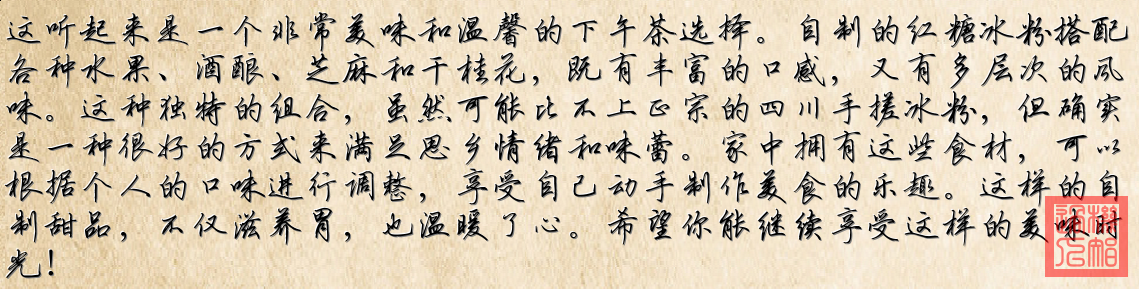 这听起来是一个非常美味和温馨的下午茶选择。自制的红糖冰粉搭配
各种水果、酒酿、芝麻和干桂花，既有丰富的口感，又有多层次的风
味。这种独特的组合，虽然可能比不上正宗的四川手搓冰粉，但确实
是一种很好的方式来满足思乡情绪和味蕾。家中拥有这些食材，可以
根据个人的口味进行调整，享受自己动手制作美食的乐趣。这样的自
制甜品，不仅滋养胃，也温暖了心。希望你能继续享受这样的美味时
光！